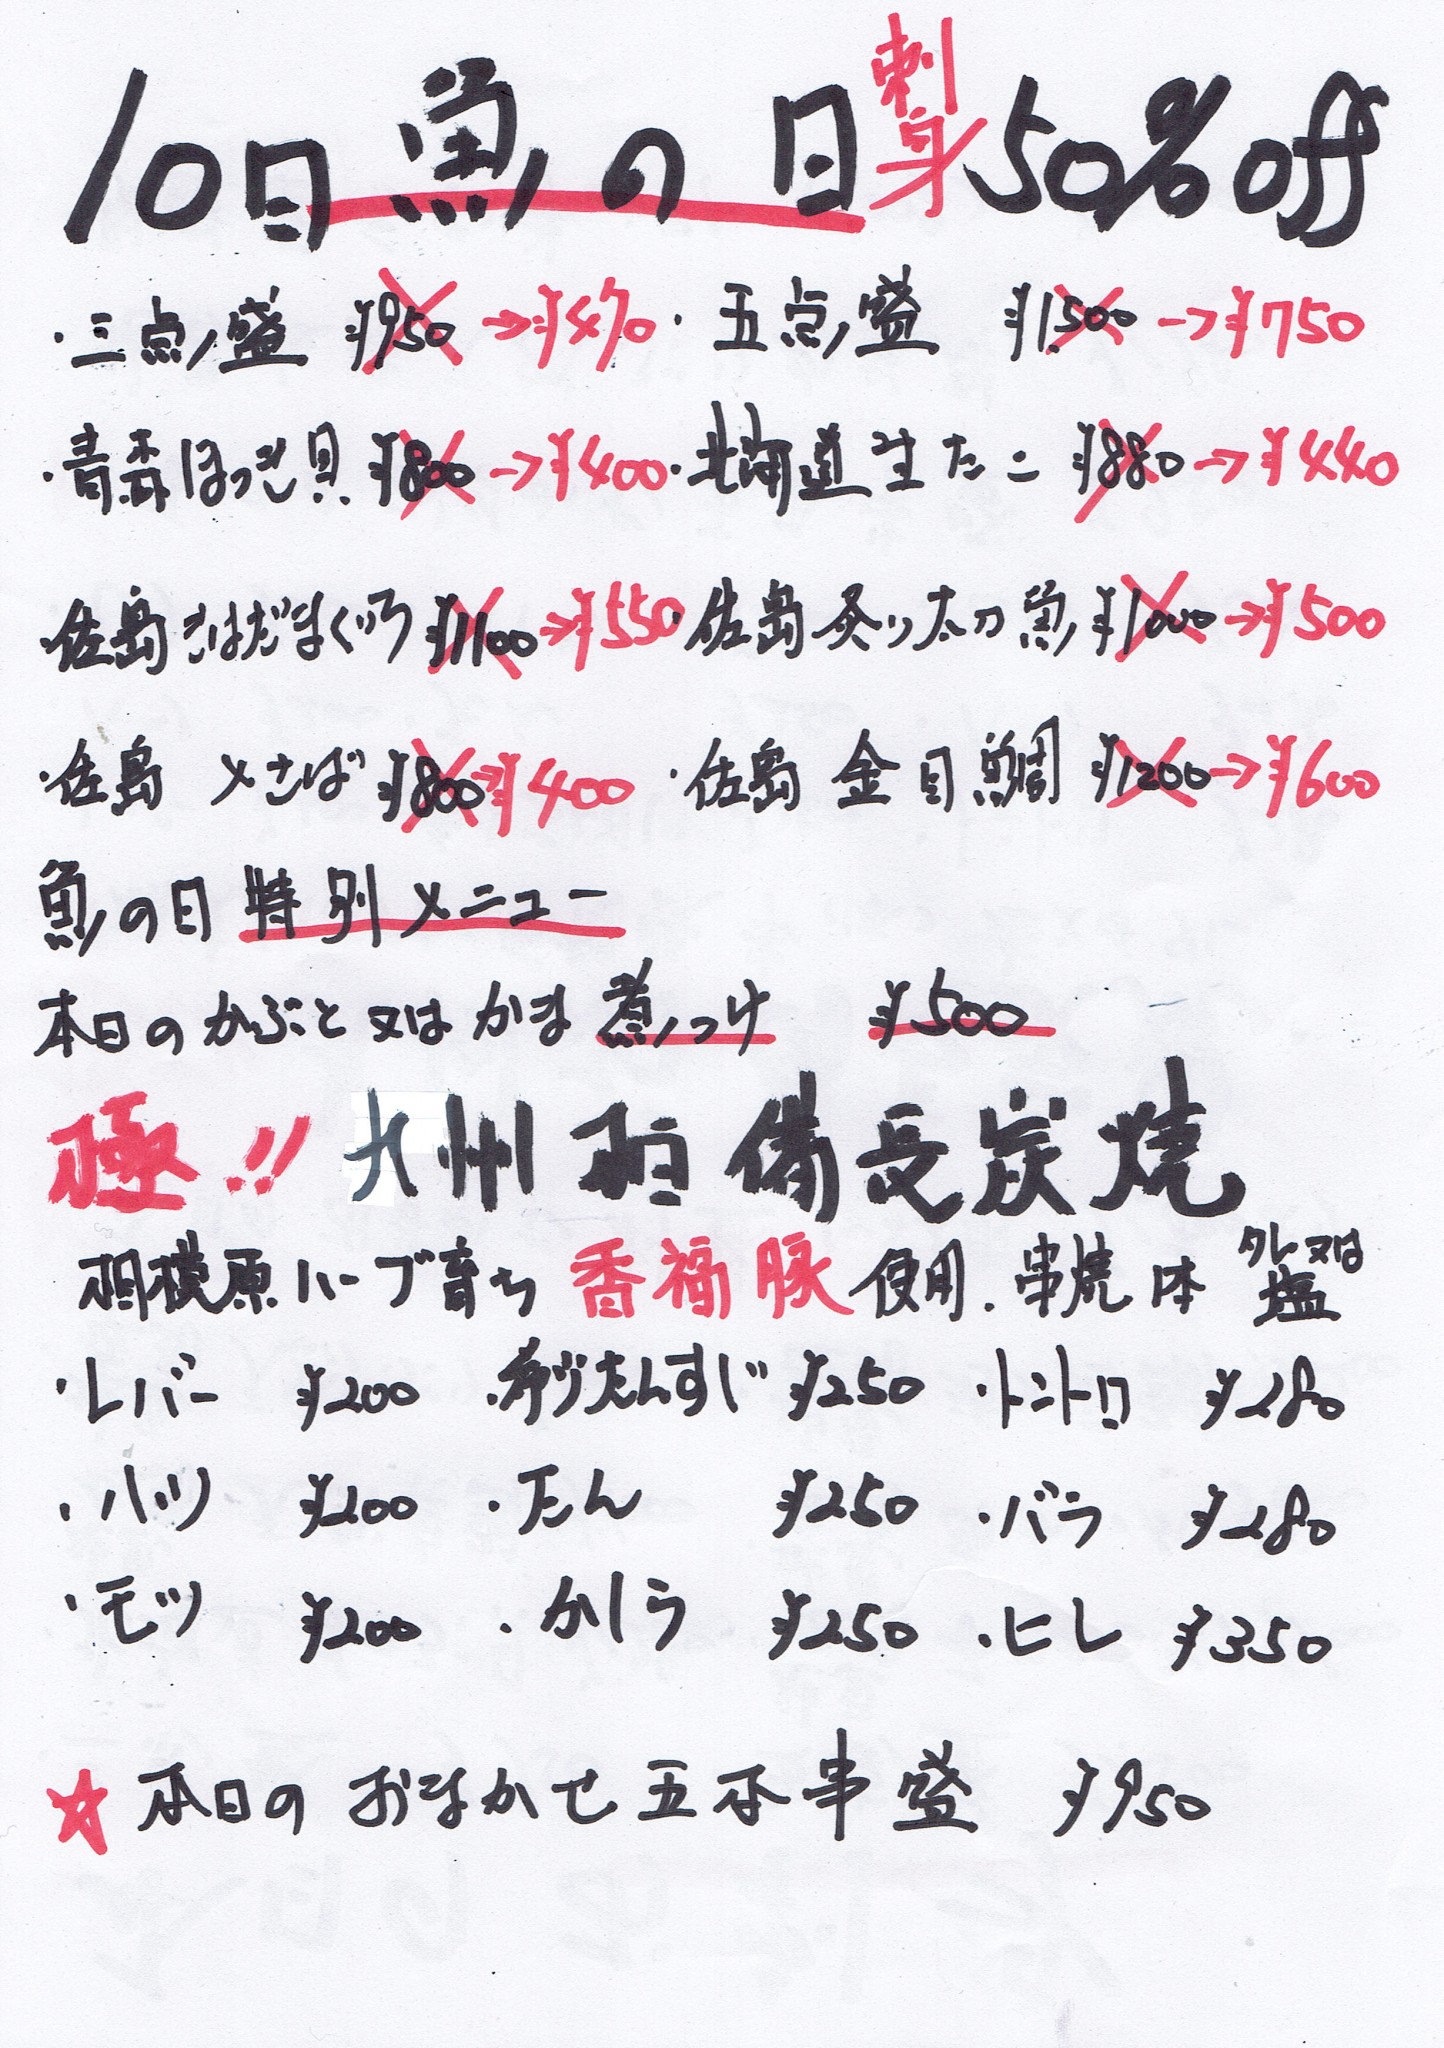 10日魚の日 刺身 50% off
・三点盛 ¥950→¥470 ・五点盛 ¥1,500→¥750
・青森ほっき貝 ¥800→¥400 ・北海道生たこ ¥880→¥440
・佐島きはだまぐろ ¥1100→¥550 ・佐島炙り太刀魚 ¥1000→¥500
・佐島 〆さば ¥800→¥400 ・佐島 金目鯛 ¥1200→¥600
魚の日 特別メニュー
本日のかぶと又はかま煮つけ ¥500
極!! 九州 備長炭焼
相模原ハーブ育ち 香福豚 使用. 串焼 一本 タレ又は塩
・レバー ¥200 ・希少たんすじ ¥250 ・トントロ ¥280
・ハツ ¥200 ・たん ¥250 ・バラ ¥280
・モツ ¥200 ・かしら ¥250 ・ヒレ ¥350
☆本日のおまかせ五本串盛 ¥950